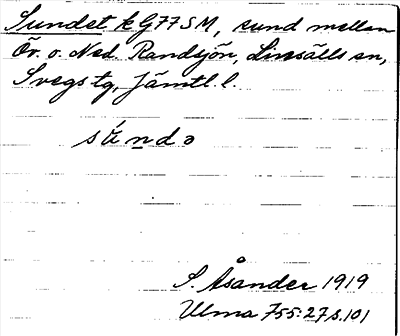 Sundet k G77SM, sund mellan
Öv. o. Ned. Randsjön, Linsälls sn,
Svegs tg, Jämtl. l.
súndə
S. Åsander 1919
Ulma 755:27 s. 101